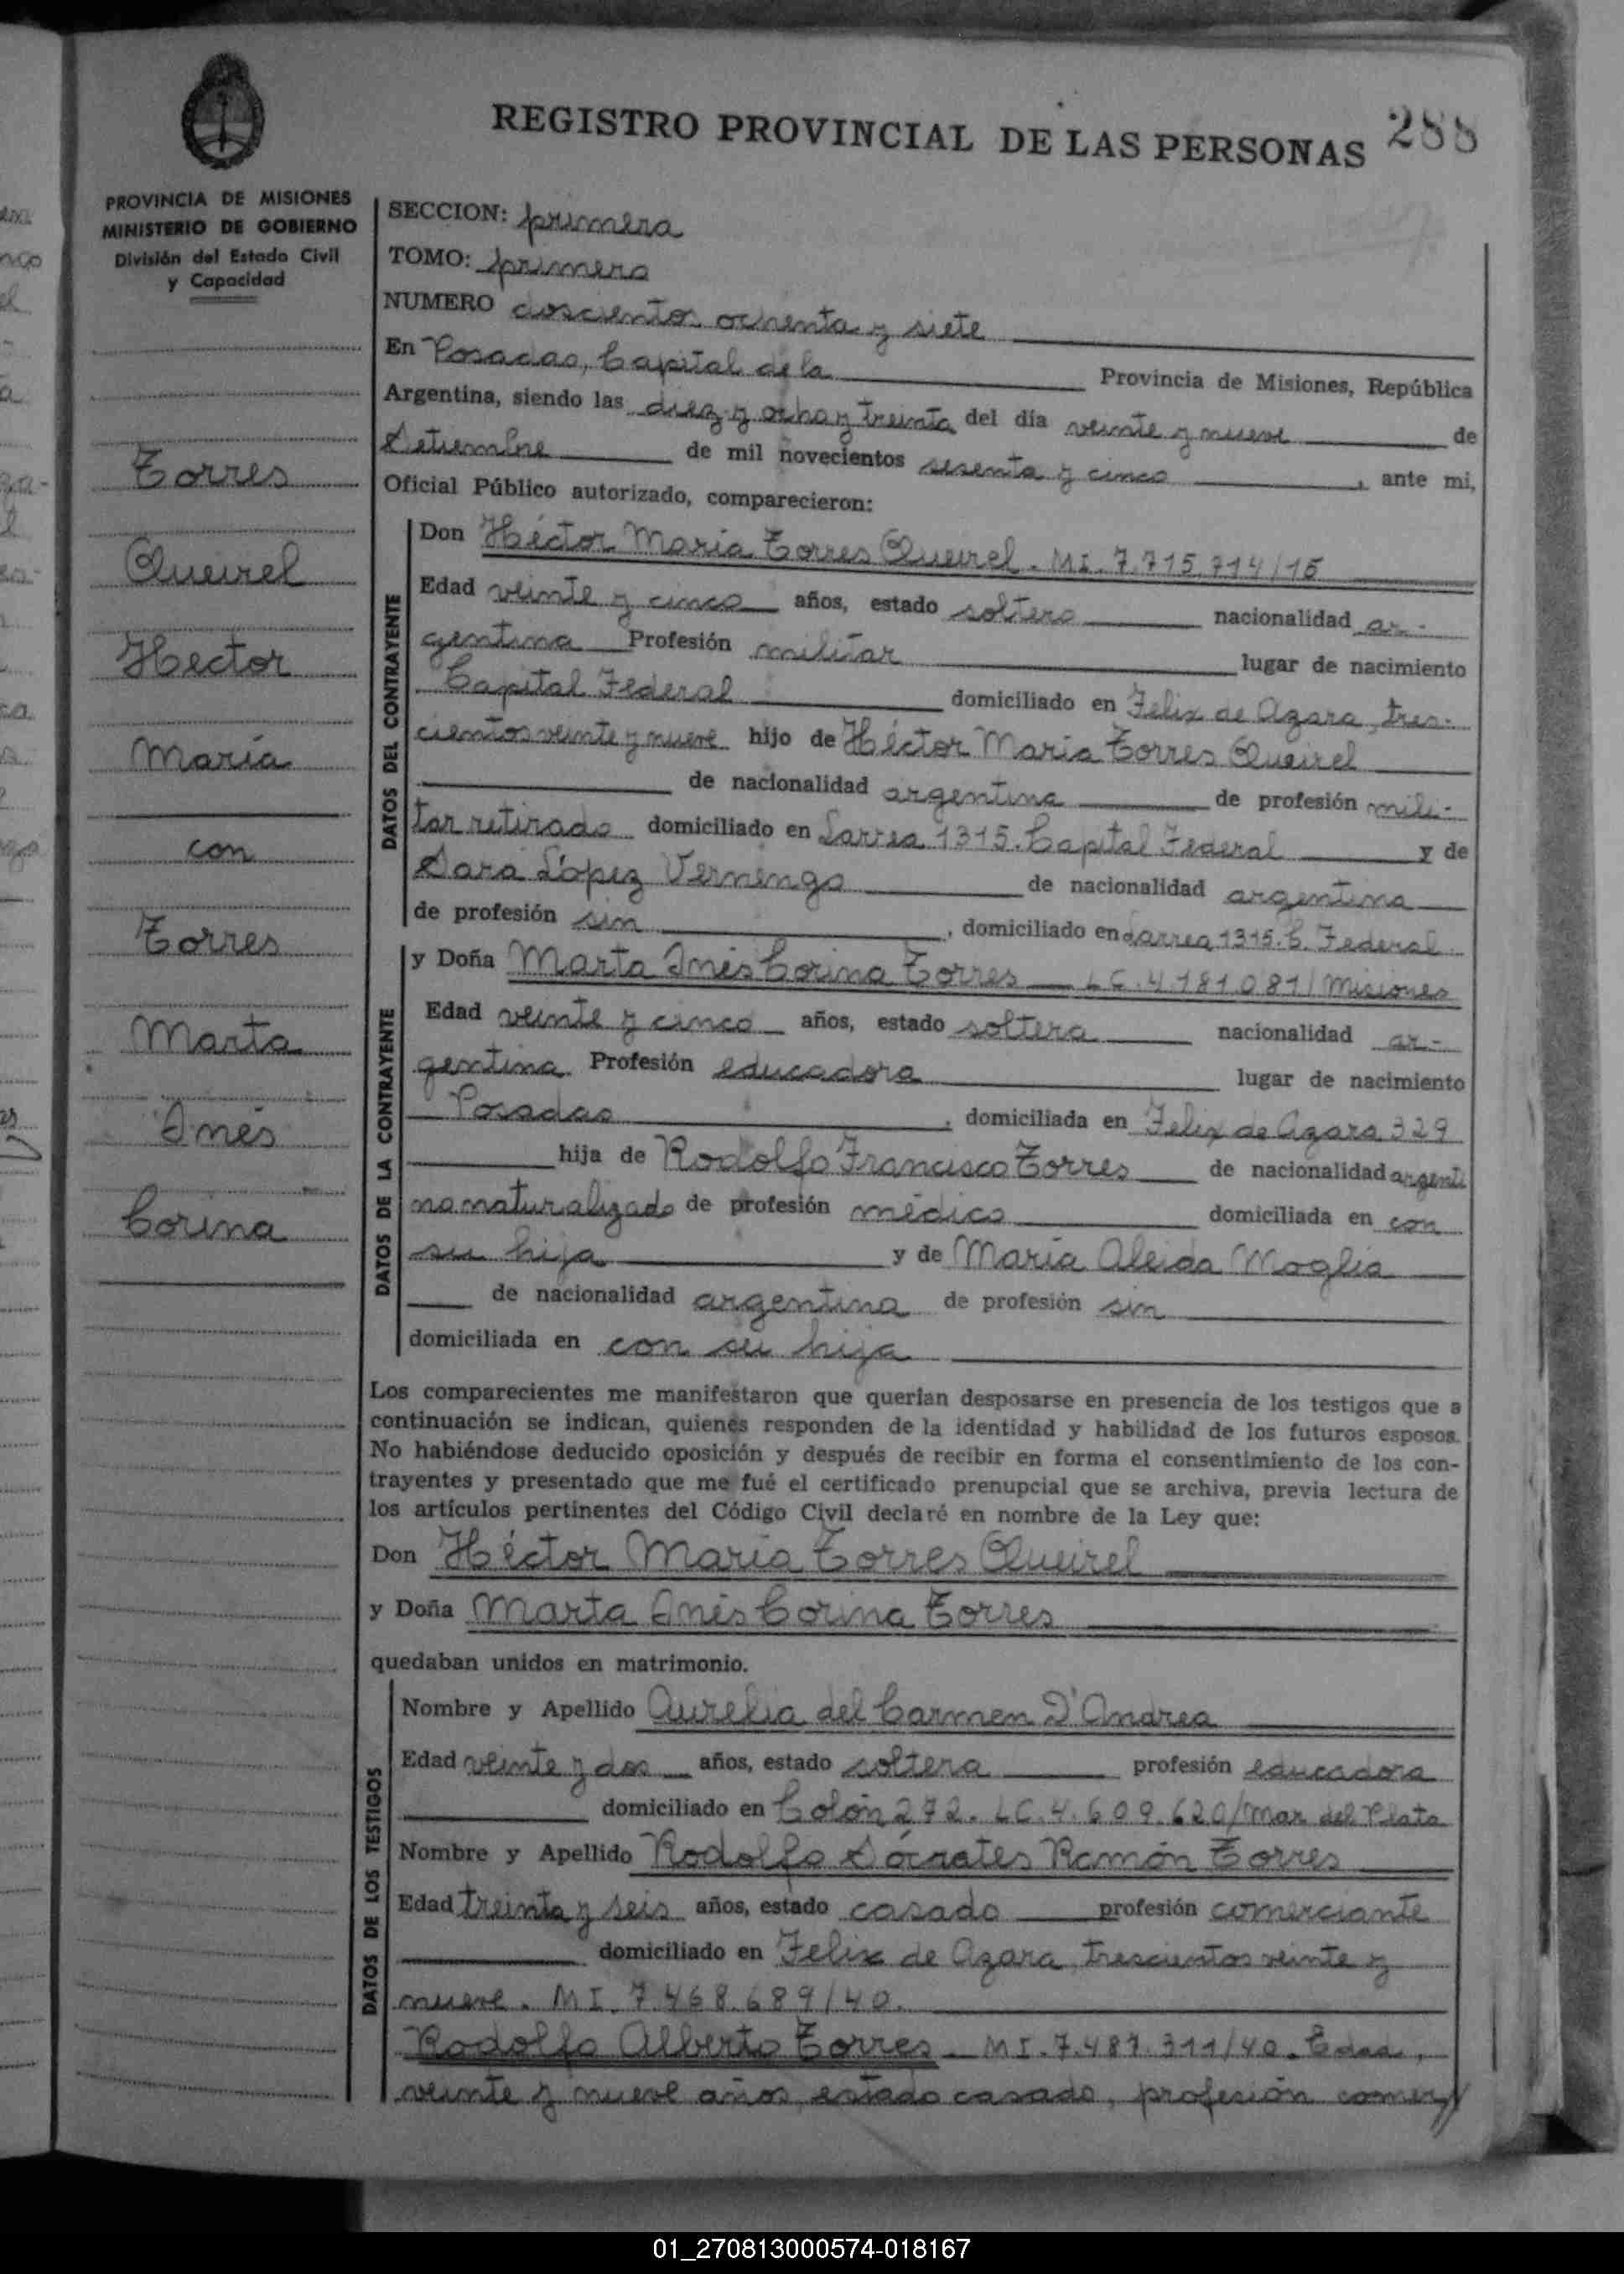 REGISTRO PROVINCIAL DE LAS PERSONAS 288
PROVINCIA DE MISIONES
MINISTERIO DE GOBIERNO
División del Estado Civil
y Capacidad
Torres
Queirel
Hector
María
con
Torres
Marta
Inés
Corina
SECCION: primera
TOMO: primero
NUMERO doscientos ochenta y siete
En Posadas, Capital de la Provincia de Misiones, República
Argentina, siendo las diez y ocho y treinta del día veinte y nueve de
Setiembre de mil novecientos sesenta y cinco, ante mi,
Oficial Público autorizado, comparecieron:
DATOS DEL CONTRAYENTE
Don Héctor María Torres Queirel. MI. 7.715.714/15
Edad veinte y cinco años, estado soltero nacionalidad ar-
gentina Profesión militar lugar de nacimiento
Capital Federal domiciliado en Felix de Azara, tres-
cientos veinte y nueve hijo de Héctor María Torres Queirel
de nacionalidad argentina de profesión mili-
tar retirado domiciliado en Larrea 1315. Capital Federal y de
Sara López Vernengo de nacionalidad argentina
de profesión sin, domiciliado en Larrea 1315. C. Federal
DATOS DE LA CONTRAYENTE
y Doña Marta Inés Corina Torres LC. 4.181.081/Misiones
Edad veinte y cinco años, estado soltera nacionalidad ar-
gentina Profesión educadora lugar de nacimiento
Posadas, domiciliada en Felix de Azara 329
hija de Rodolfo Francisco Torres de nacionalidad argenti
no naturalizado de profesión médico domiciliada en con
su hija y de María Aleida Moglia
de nacionalidad argentina de profesión sin
domiciliada en con su hija
Los comparecientes me manifestaron que querían desposarse en presencia de los testigos que a
continuación se indican, quienes responden de la identidad y habilidad de los futuros esposos.
No habiéndose deducido oposición y después de recibir en forma el consentimiento de los con-
trayentes y presentado que me fué el certificado prenupcial que se archiva, previa lectura de
los artículos pertinentes del Código Civil declaré en nombre de la Ley que:
Don Héctor María Torres Queirel
y Doña Marta Inés Corina Torres
quedaban unidos en matrimonio.
DATOS DE LOS TESTIGOS
Nombre y Apellido Aurelia del Carmen D'Andrea
Edad veinte y dos años, estado soltera profesión educadora
domiciliado en Colón 272. LC. 4.609.620/Mar del Plata
Nombre y Apellido Rodolfo Sócrates Ramón Torres
Edad treinta y seis años, estado casado profesión comerciante
domiciliado en Felix de Azara, trescientos veinte y
nueve. MI. 7.468.689/40.
Rodolfo Alberto Torres MI. 7.487.311/40. Edad,
veinte y nueve años, estado casado, profesión comer//
01_270813000574-018167